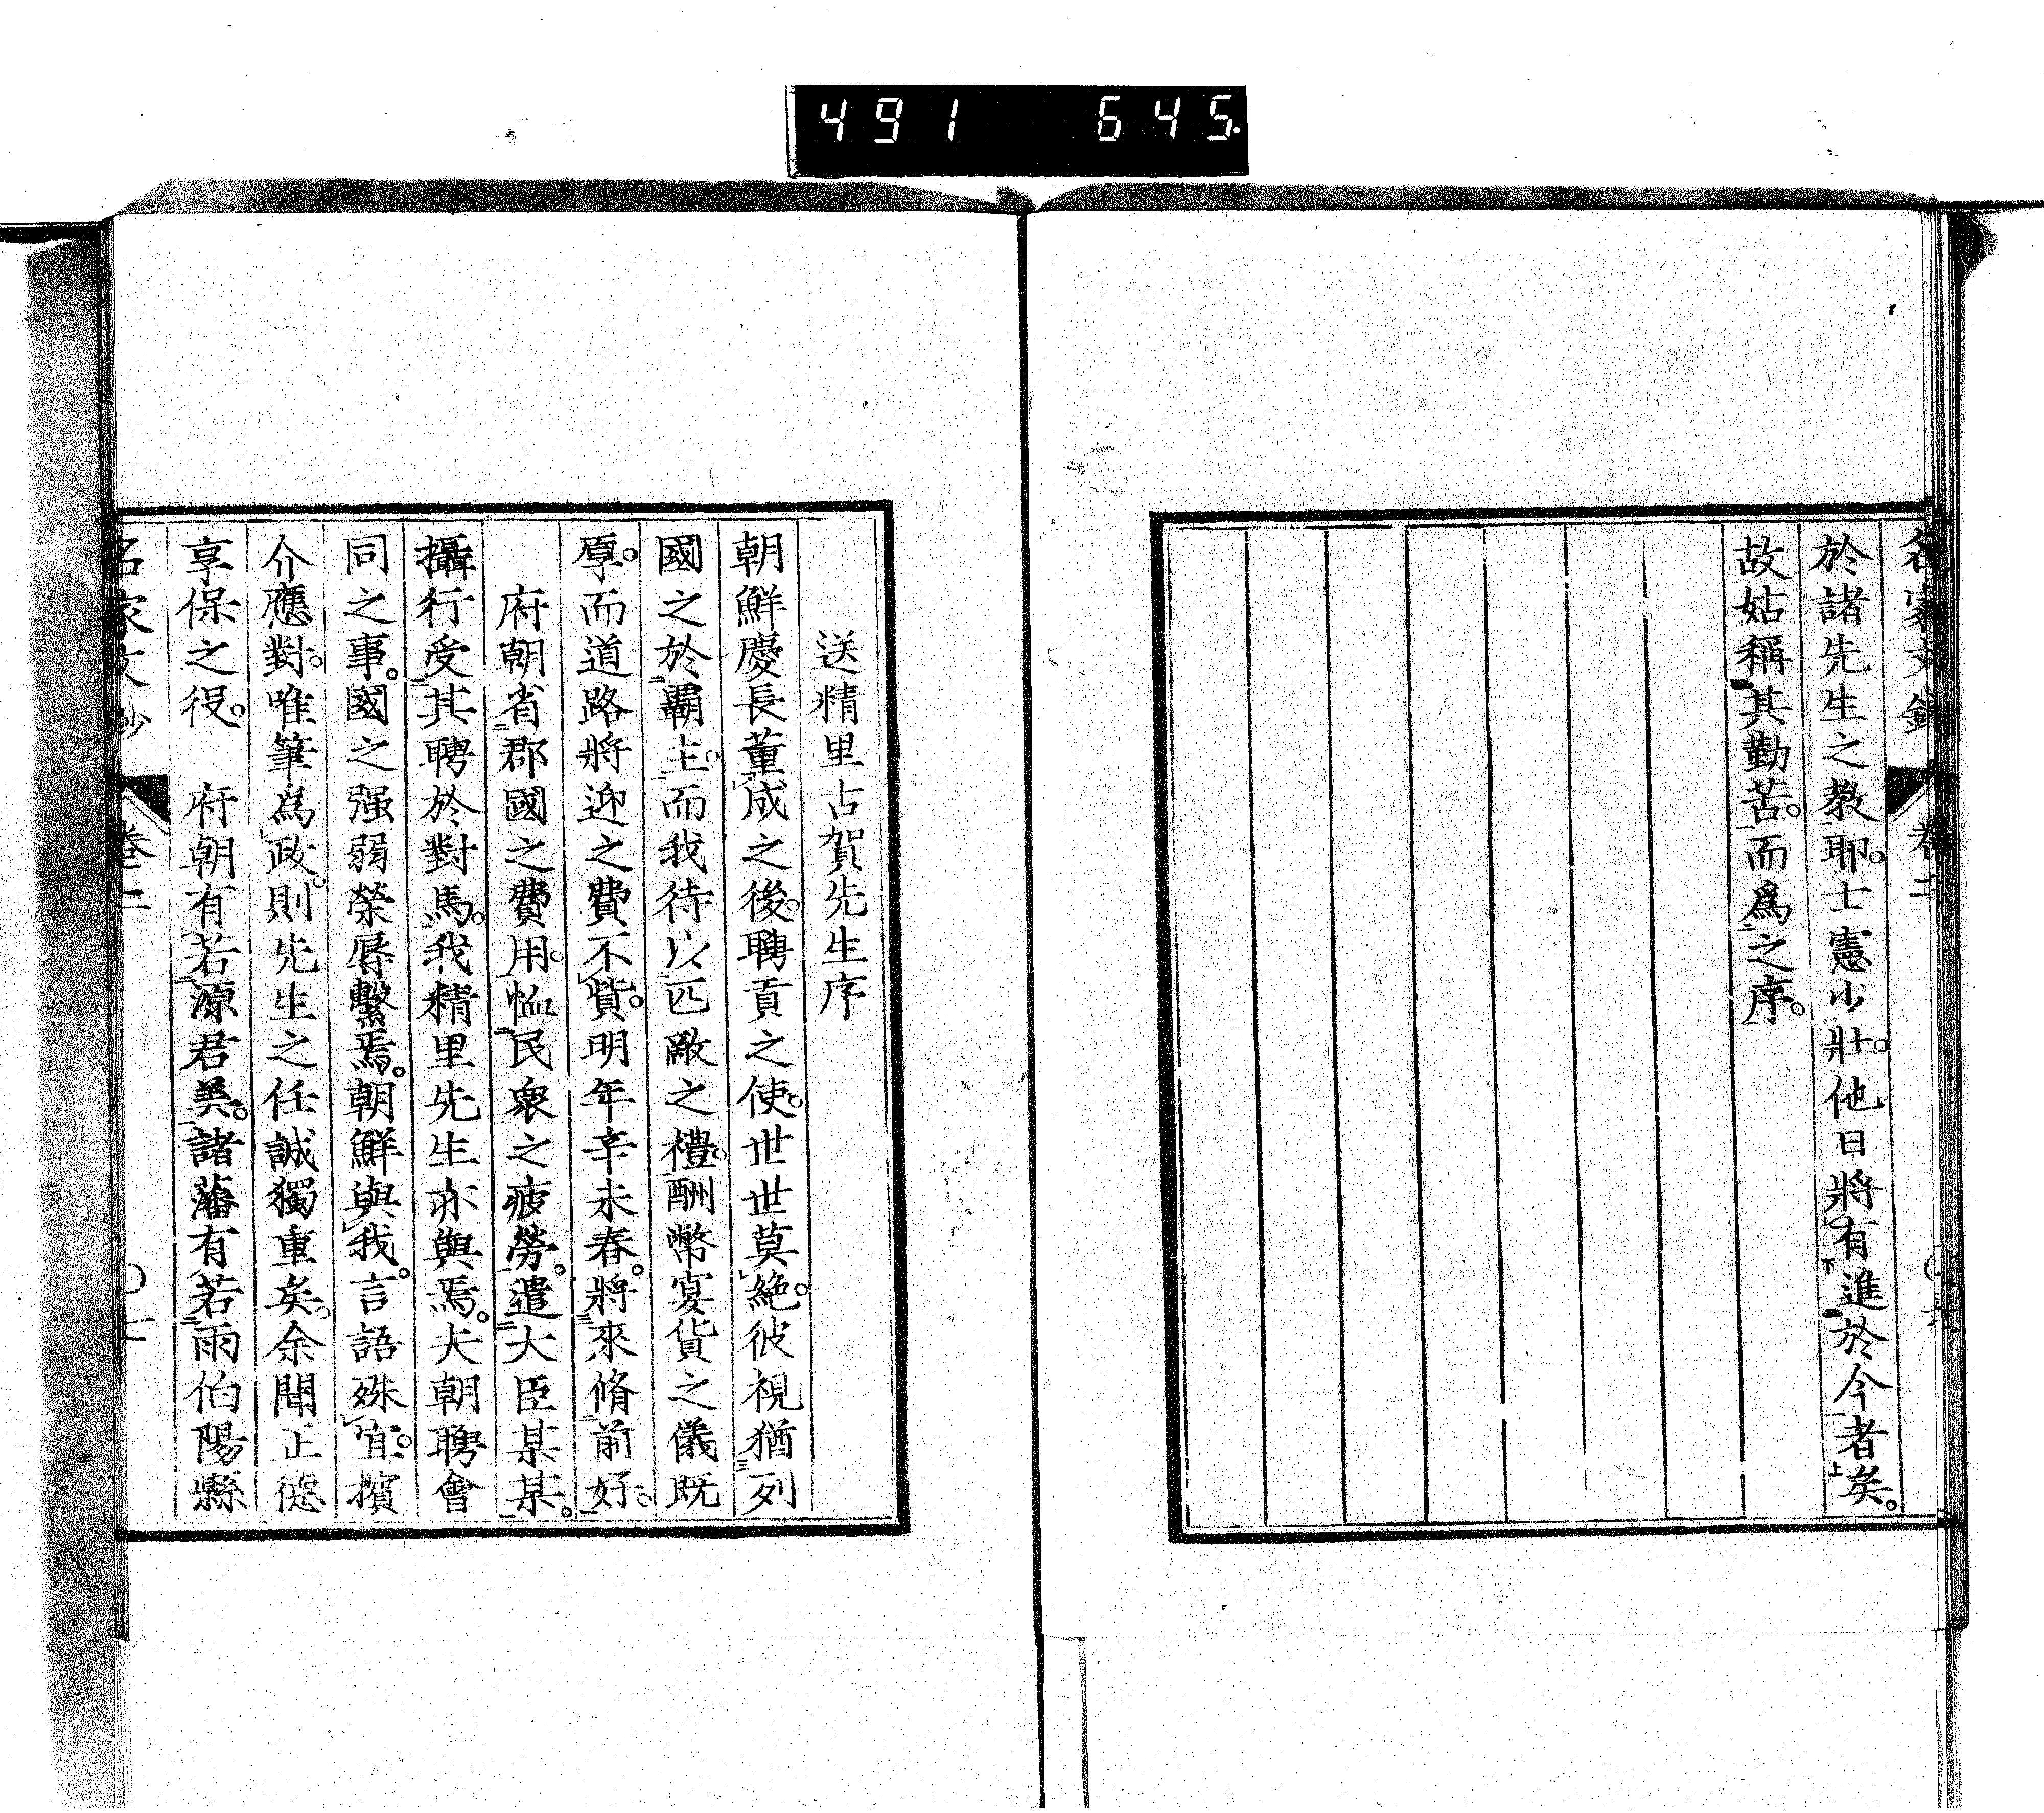 491 645
於諸先生之教耶。士憲少壯。他日將有進於今者矣。
故姑稱其勤苦。而爲之序。
送精里古賀先生序
朝鮮慶長董成之後。聘貢之使。世世莫絶。彼視猶列
國之於覇主。而我待以匹敵之禮。酬幣宴貨之儀既
厚。而道路將迎之費不貲。明年辛未春。將來脩前好。
府朝省郡國之費用。恤民衆之疲勞。遣大臣某某。
攝行受其聘於對馬。我精里先生亦與焉。夫朝聘會
同之事。國之强弱榮辱繫焉。朝鮮與我。言語殊宜。擯
介應對。唯筆爲政。則先生之任誠獨重矣。余聞正德
享保之役。 府朝有若源君美。諸藩有若雨伯陽縣
名家文抄 卷二